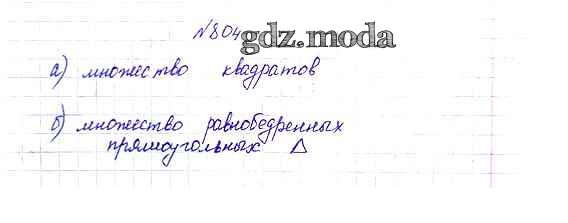 №804
gdz.moda
а) множество квадратов
б) множество равнобедренных
прямоугольных △